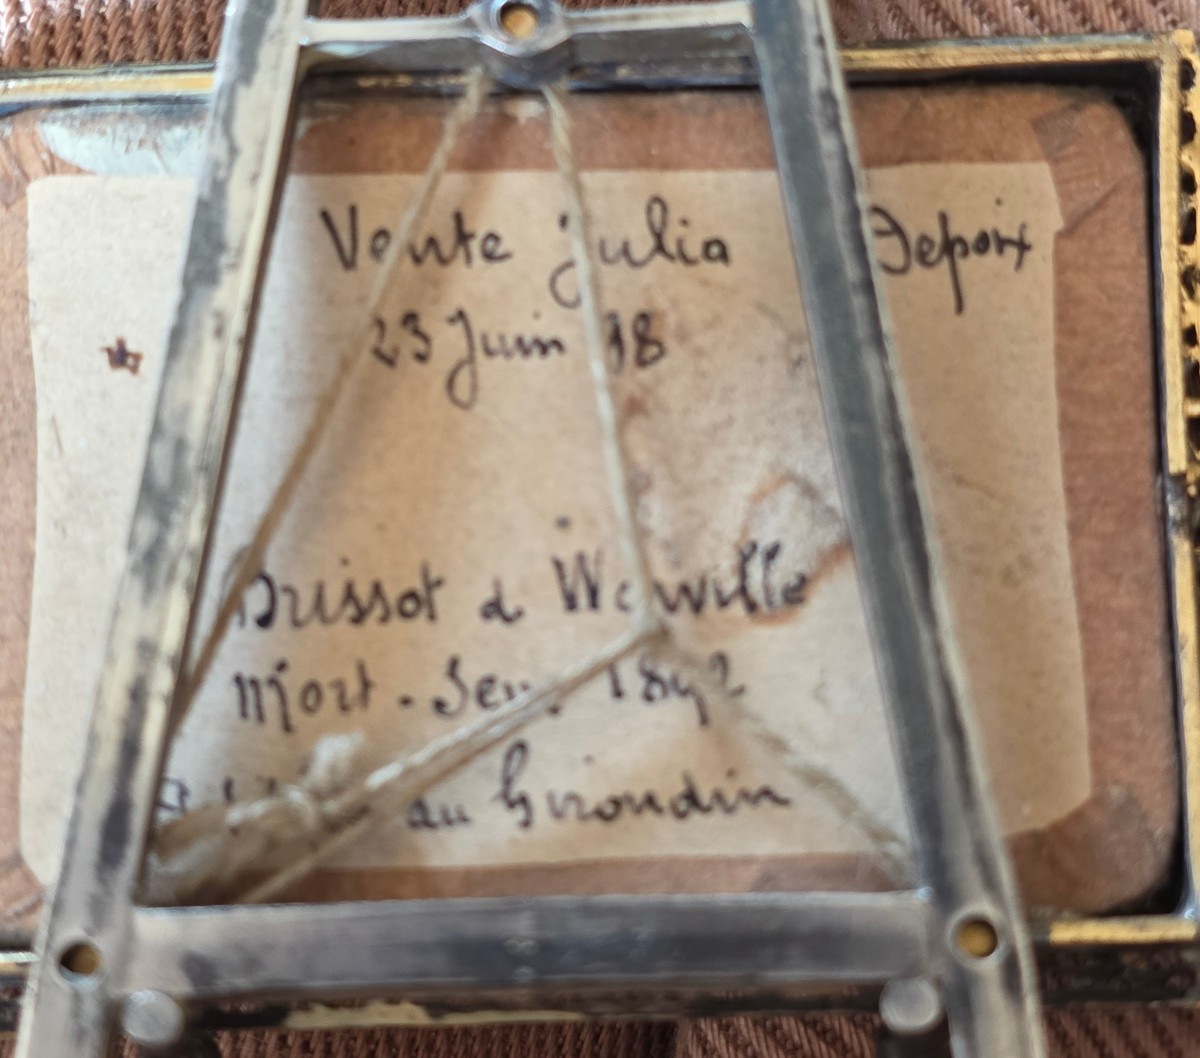 Vente Julia Depoix
23 Juin 98
Brissot d Warville
Mort. 1892
du Girondin